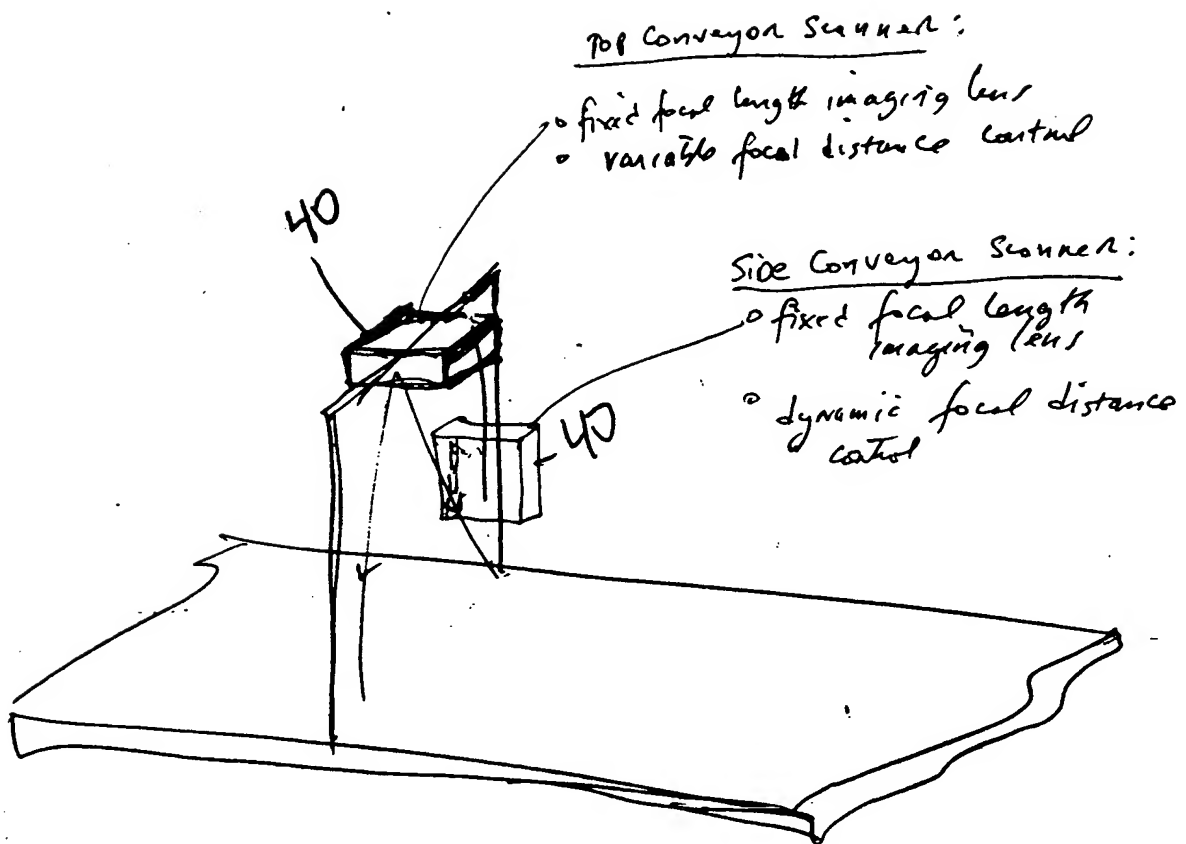 Top Conveyor Scanner:
o fixed focal length imaging lens
o variable focal distance control
40
Side Conveyor Scanner:
o fixed focal length
imaging lens
o dynamic focal distance
control
40